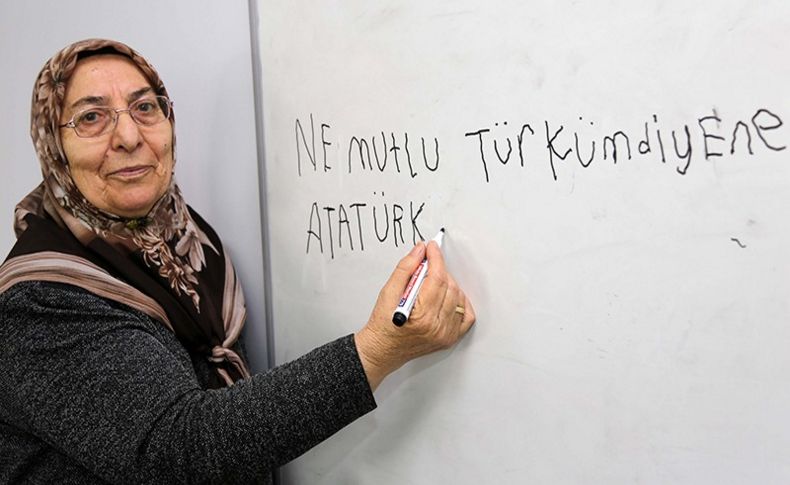 NE mutlu TürKümdiyEne
ATATÜRK